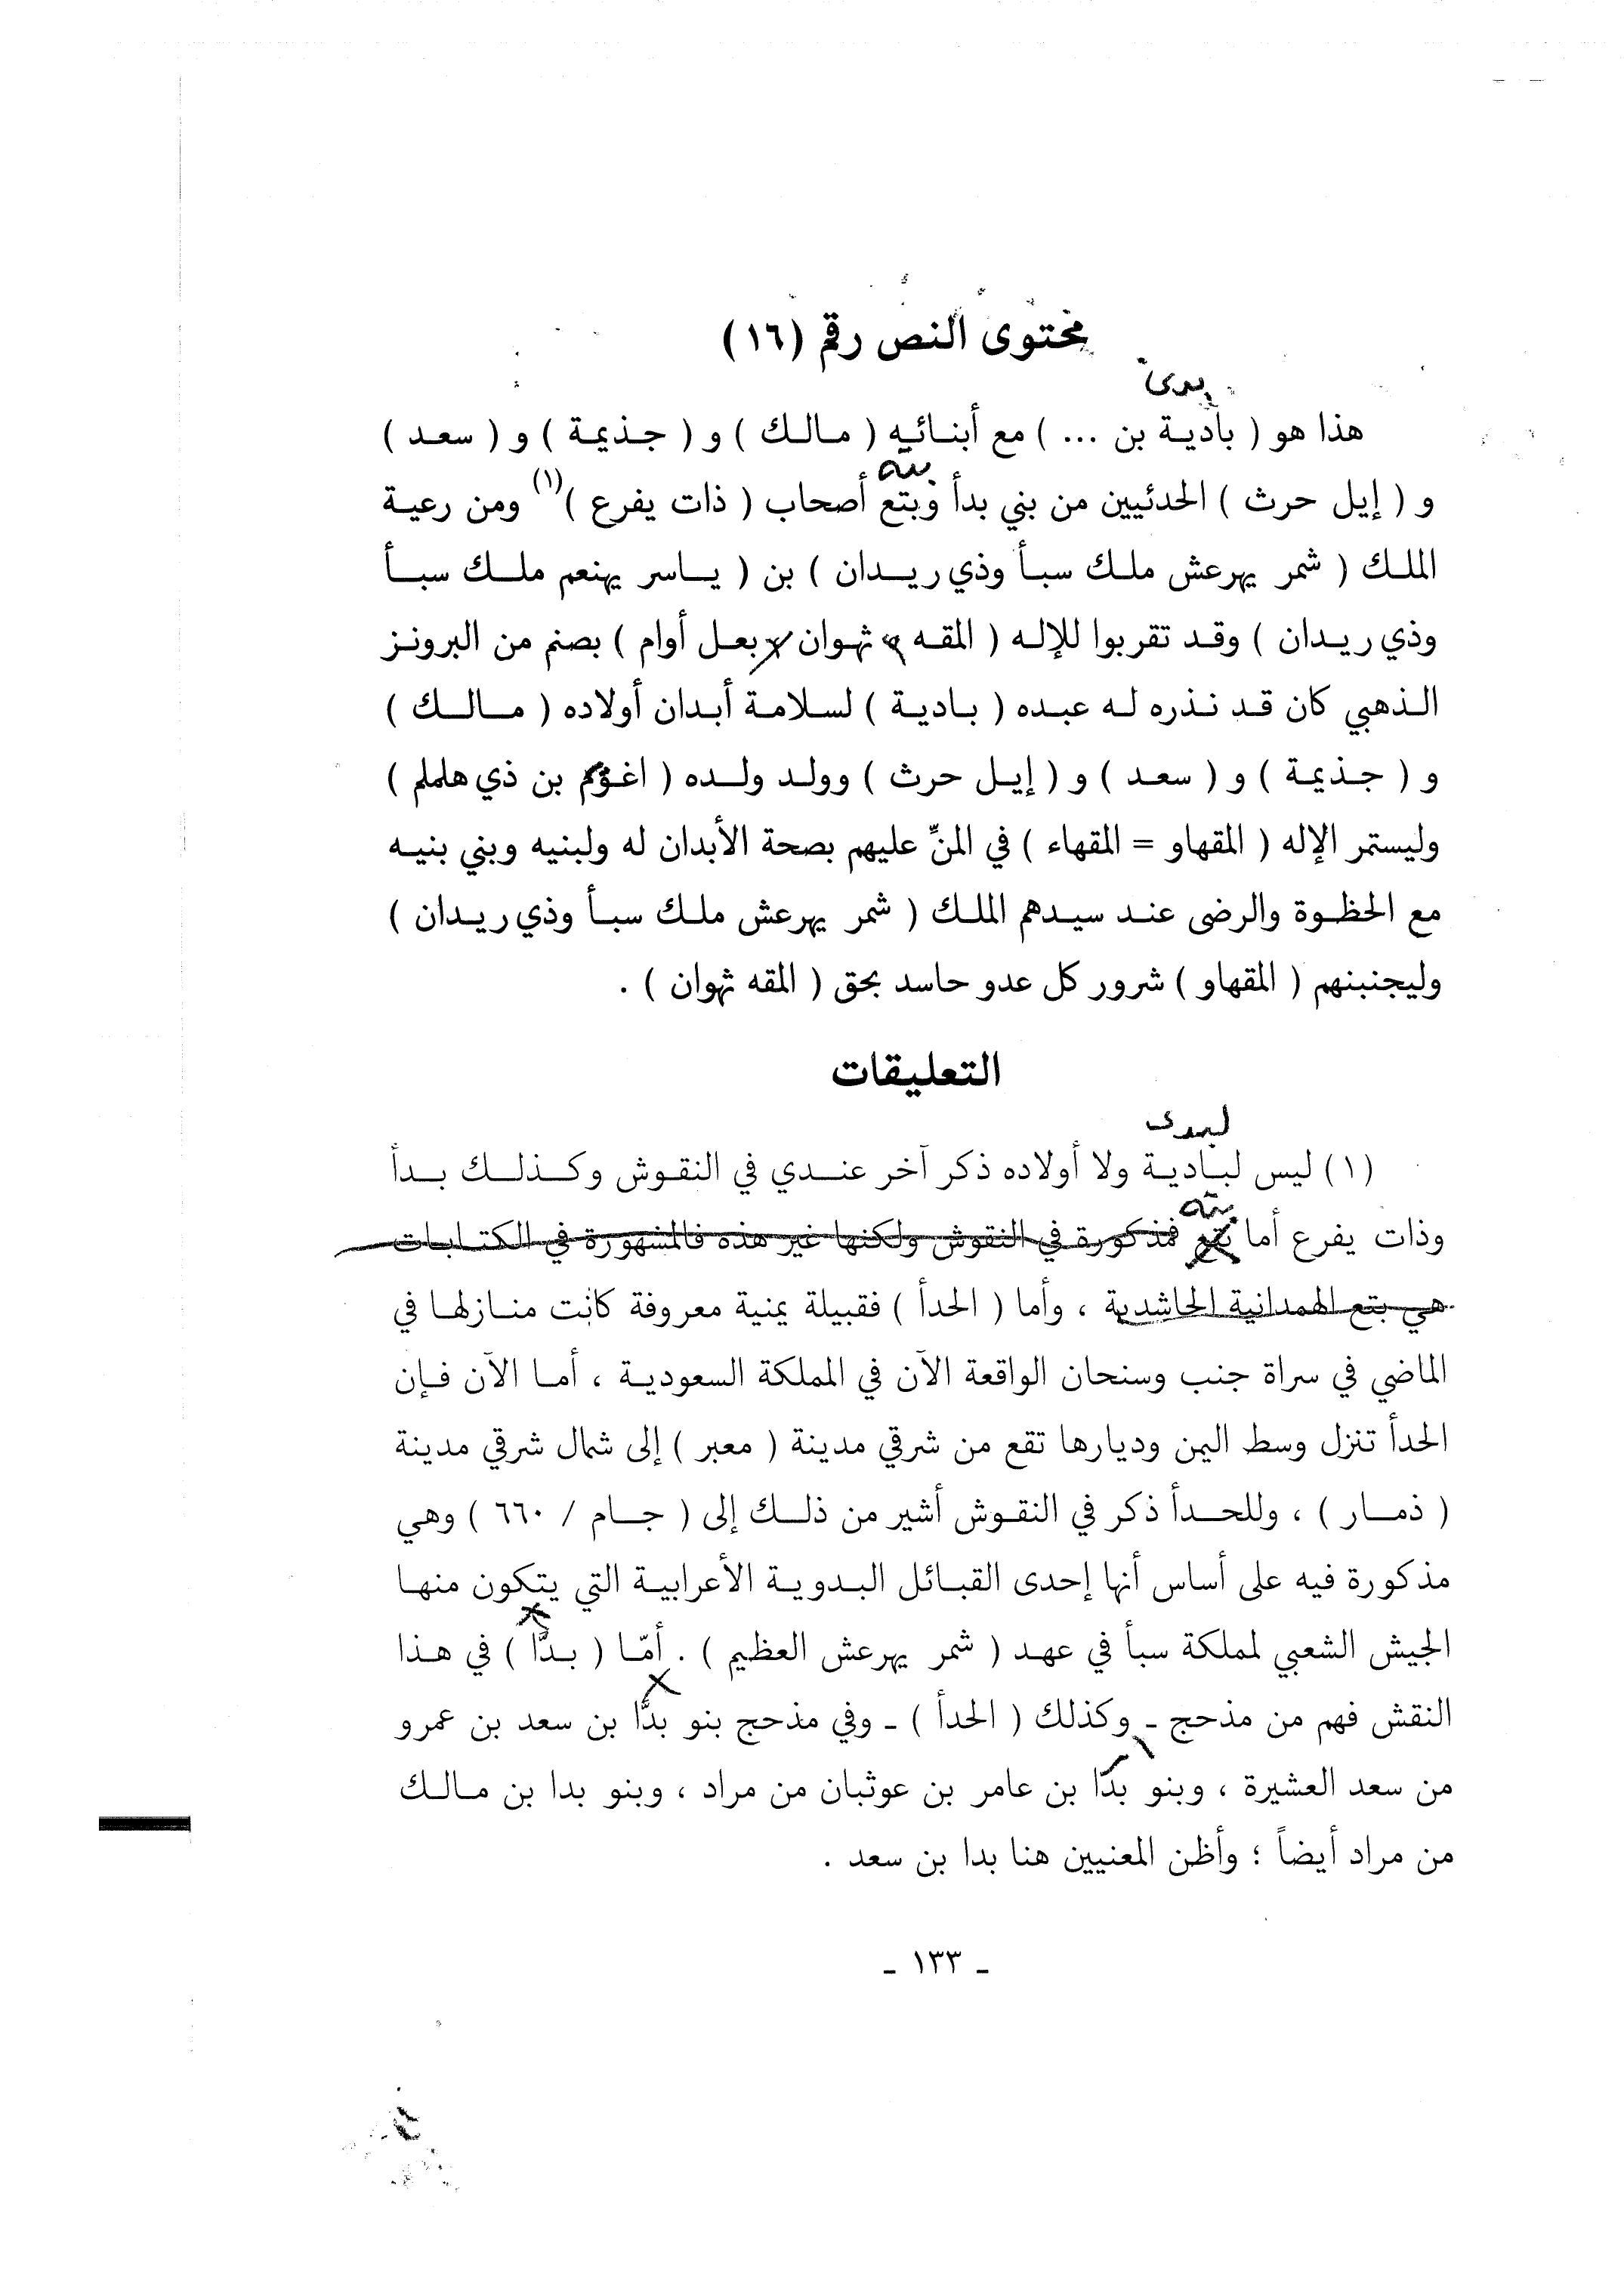 محتوى النص رقم (١٦)
هذا هو ( بادية بن ... ) مع أبنائه ( مالك ) و ( جذيمة ) و ( سعد )
و ( إيل حرث ) الحدئيين من بني بدأ وبتع أصحاب ( ذات يفرع )(١) ومن رعية
الملك ( شمر يهرعش ملك سبأ وذي ريدان ) بن ( ياسر يهنعم ملك سبأ
وذي ريدان ) وقد تقربوا للإله ( المقه ثهوان بعل أوام ) بصنم من البرونز
الذهبي كان قد نذره له عبده ( بادية ) لسلامة أبدان أولاده ( مالك )
و ( جذيمة ) و ( سعد ) و ( إيل حرث ) وولد ولده ( بن ذي هلملم )
وليستمر الإله ( المقهاو = المقهاء ) في المنِّ عليهم بصحة الأبدان له ولبنيه وبني بنيه
مع الحظوة والرضى عند سيدهم الملك ( شمر يهرعش ملك سبأ وذي ريدان )
وليجنبنهم ( المقهاو ) شرور كل عدو حاسد بحق ( المقه ثهوان ) .
التعليقات
(١) ليس لبادية ولا أولاده ذكر آخر عندي في النقوش وكذلك بدأ
وذات يفرع أما بتع فمذكورة في النقوش ولكنها غير هذه فالمشهورة في الكتابات
هي بتع الهمدانية الحاشدية ، وأما ( الحدأ ) فقبيلة يمنية معروفة كانت منازلها في
الماضي في سراة جنب وسنحان الواقعة الآن في المملكة السعودية ، أما الآن فإن
الحدأ تنزل وسط اليمن وديارها تقع من شرقي مدينة ( معبر ) إلى شمال شرقي مدينة
( ذمار ) ، وللحدأ ذكر في النقوش أشير من ذلك إلى ( جام / ٦٦٠ ) وهي
مذكورة فيه على أساس أنها إحدى القبائل البدوية الأعرابية التي يتكون منها
الجيش الشعبي لمملكة سبأ في عهد ( شمر يهرعش العظيم ) . أمّا ( بدَّا ) في هذا
النقش فهم من مذحج ـ وكذلك ( الحدأ ) ـ وفي مذحج بنو بدَّا بن سعد بن عمرو
من سعد العشيرة ، وبنو بدّا بن عامر بن عوثبان من مراد ، وبنو بدا بن مالك
من مراد أيضاً ؛ وأظن المعنيين هنا بدا بن سعد .
ـ ١٣٣ ـ